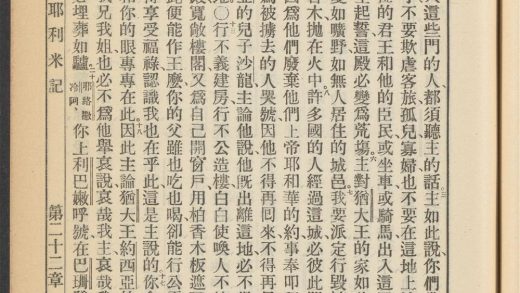 人這些門的人都須聽主的話主如此說你們
不要欺虐客旅孤兒寡婦也不要在這地上
的君王和他的臣民或坐車或騎馬出入這
起誓這殿必變爲荒塲主對猶大王的家如
如曠野如無人居住的城邑我要派定行毀
木抛在火中許多國的人經過這城必彼此
爲他們廢棄他們上帝耶和華的約事奉叩
爲被擄去的人哭號因他不得再囘來不得再
的兒子沙龍主論他說他旣出離這地必不
〇行不義建房行不公造樓白白使喚人不
殿寬敞樓閣又爲自己開窗戶用柏香木板遮
此便能作王麽你的父雖也吃也喝卻能行公
得享受福祿認識我也在乎此這是主說的你
你的眼專專在此因此主論猶大王約西亞
我兄我姐也必不爲他舉哀說哀哉我主哀哉
埋葬如驢耶路撒冷阿你上利巴嫩呼號在巴珊
耶利米記 第二十二章